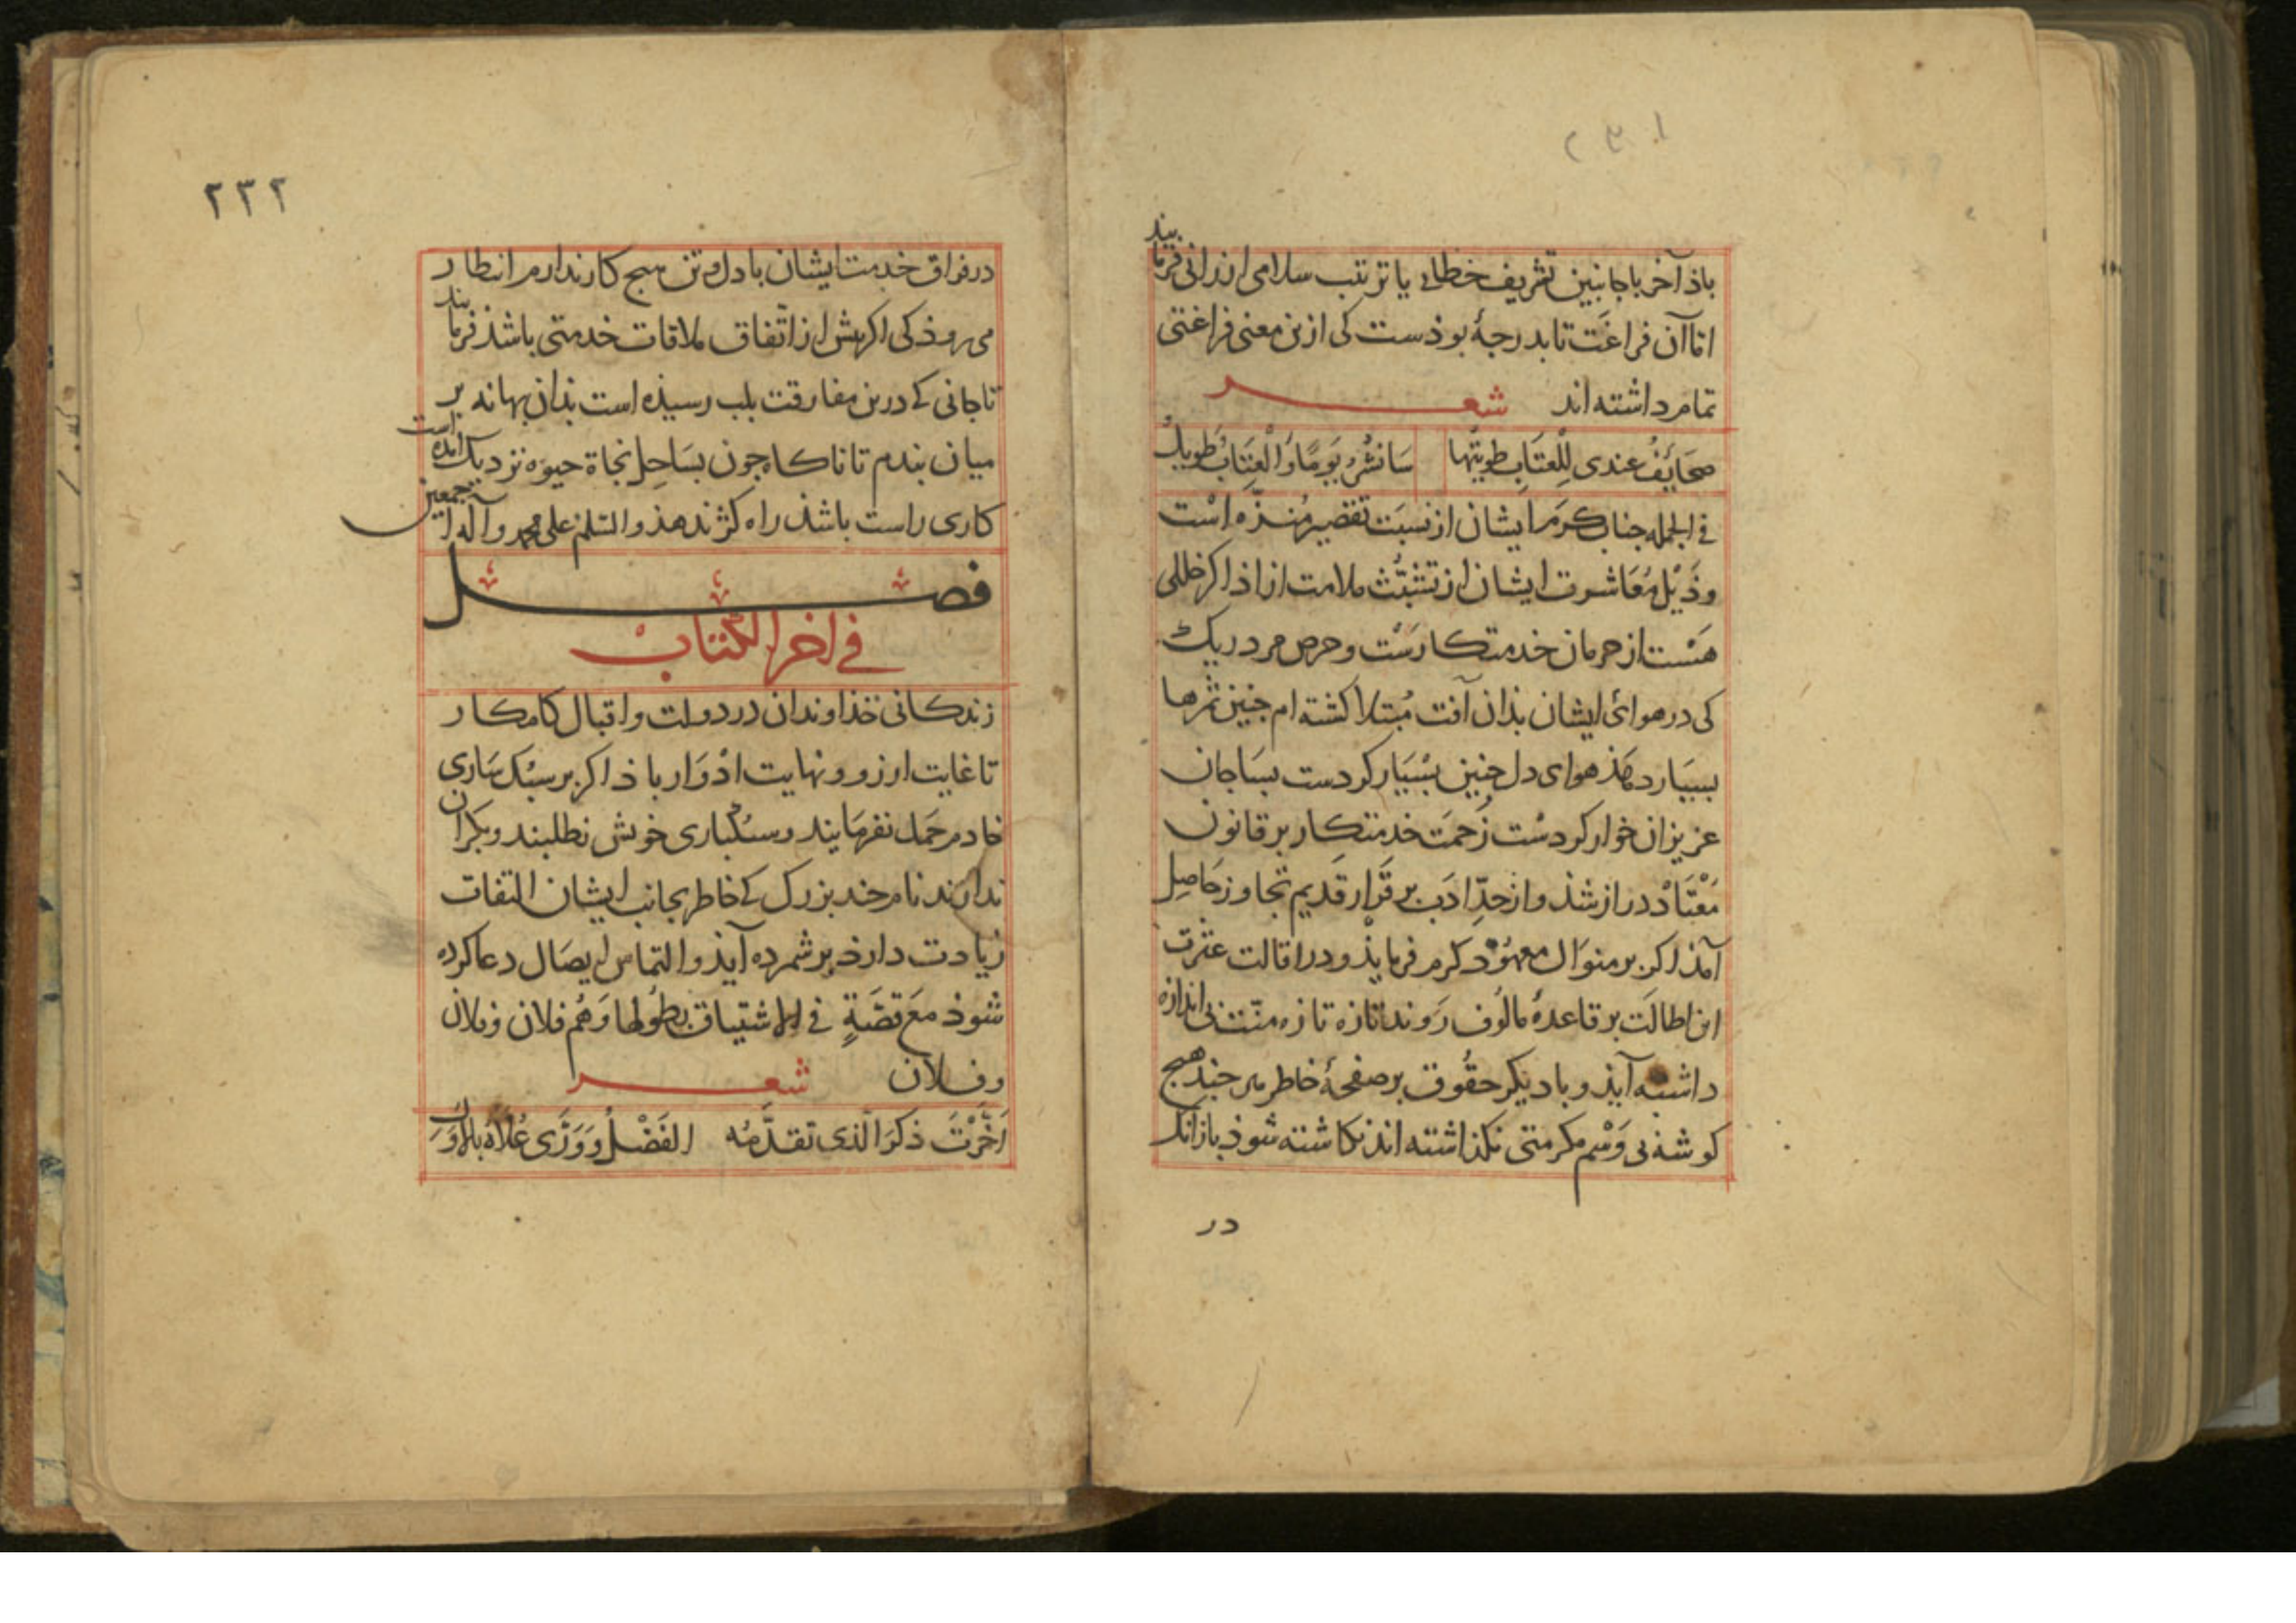 ۲۳۱
باذ آخر باجانبین تشریف خطابی یا ترتیب سلامی ارزانی فرمایند
اما آن فراغت تا بدرجهٔ بوذست کی ازین معنی فراغتی
تمام داشته اند شعر
صَحَایِفُ عندی لِلْعتَابِ طویتُها سَانشُرُ یَومًا وَالْعِتَابُ طَویلُ
فی الجمله جناب کرم ایشان از نسبَت تقصیر مُنزّه است
وذَیْل مُعَاشرت ایشان از تشبّث ملامت ازاذ اکر خللی
هَسْت از حرمان خدمتکارسْت وحرص مرد ریک
کی در هوای ایشان بذان آفت مُبتلا کشته ام جنین ثمرها
بسیار دهذ هوای دل جنین بسْیَار کردست بسَاجان
عزیزان خوار کردسْت زَحمَت خدمتکار بر قانون
مُعْتَادْ دراز شذ واز حدِّ ادَب بر قرَار قَدیم تجاوز حَاصِل
آمذ اکر بر منوَال معهُوْد کرم فرمایذ ودر اقالت عثرت
این اطالَت بر قاعدهٔ مالُوف رَوند تازه تازه منّت بی اندازه
داشته آیذ وبا دیکر حقُوق بر صفحهٔ خاطر هر جند هیج
کوشهٔ بی وَسْم مکرمتی نکذاشته اند نکاشته شوذ بازانک
در
۲۳۲
در فراق خدمت ایشان با دل و تن هیج کار ندارم انتظار
می روذ کی اکر بیش از اتّفاق ملاقات خدمتی باشذ فرمایند
تا جانی کے درین مفارقت بلب رسیذه است بذان بهانه بر
میان بندم تا ناکاه جون بسَاحِل نجاة حیوة نزدیک آمده است
کاری راست باشذ راه کژ ندهذ والسّلم علی محمد وآله اجمعین
فصل
فی اخر الکتاب
زندکانی خذاوندان در دولت واقبال کامکار
تا غایت ارزو ونهایت ادْوَار باذ اکر بر سبْک سَاری
خادم حَمل نفرمَایند وسبُکباری خویش نطلبند وبکران
ندارند نام جند بزرک کے خاطر بجانب ایشان التفات
زیادت دارذ بر شمرده آیذ والتماس ایصَال دعا کرده
شوذ مَع قصّةٍ فی الاشتیاق بطُولها وَهُم فلان وفلان
وفلان شعر
اَخَّرْتَ ذکرَ الّذی تقدّمُه الفَضْلُ